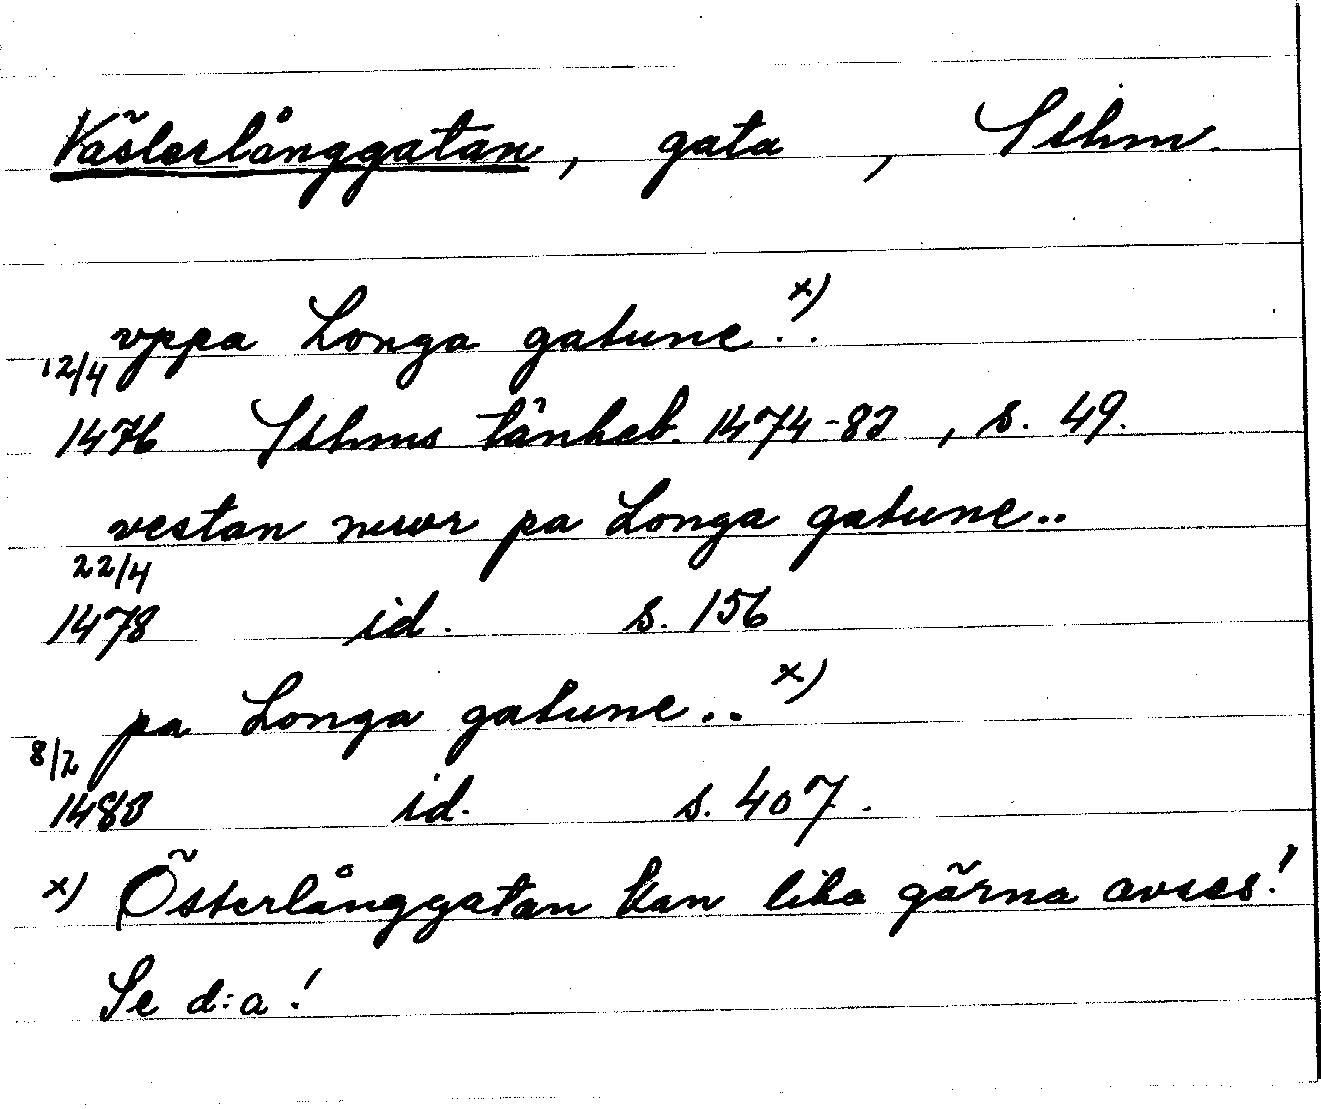 Västerlånggatan, gata, Sthm.
vppa Longa gatune..x)
12/4
1476 Sthms tänkeb. 1474-83, s. 49.
vestan mwr pa Longa gatune..
22/4
1478 id. s. 156
pa Longa gatune..x)
8/2
1483 id. s. 407.
x) Österlånggatan kan lika gärna avses!
Se d:a!